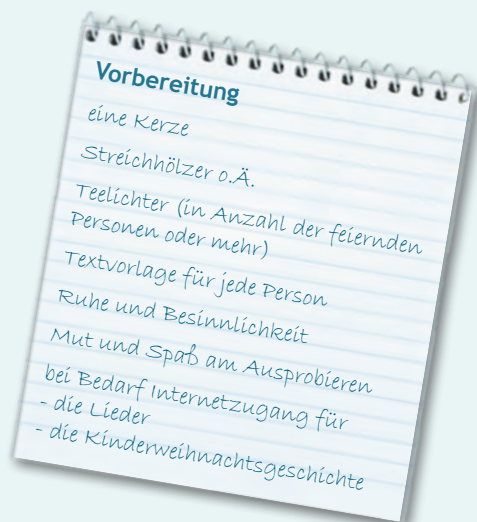 Vorbereitung
eine Kerze
Streichhölzer o.Ä.
Teelichter (in Anzahl der feiernden
Personen oder mehr)
Textvorlage für jede Person
Ruhe und Besinnlichkeit
Mut und Spaß am Ausprobieren
bei Bedarf Internetzugang für
- die Lieder
- die Kinderweihnachtsgeschichte